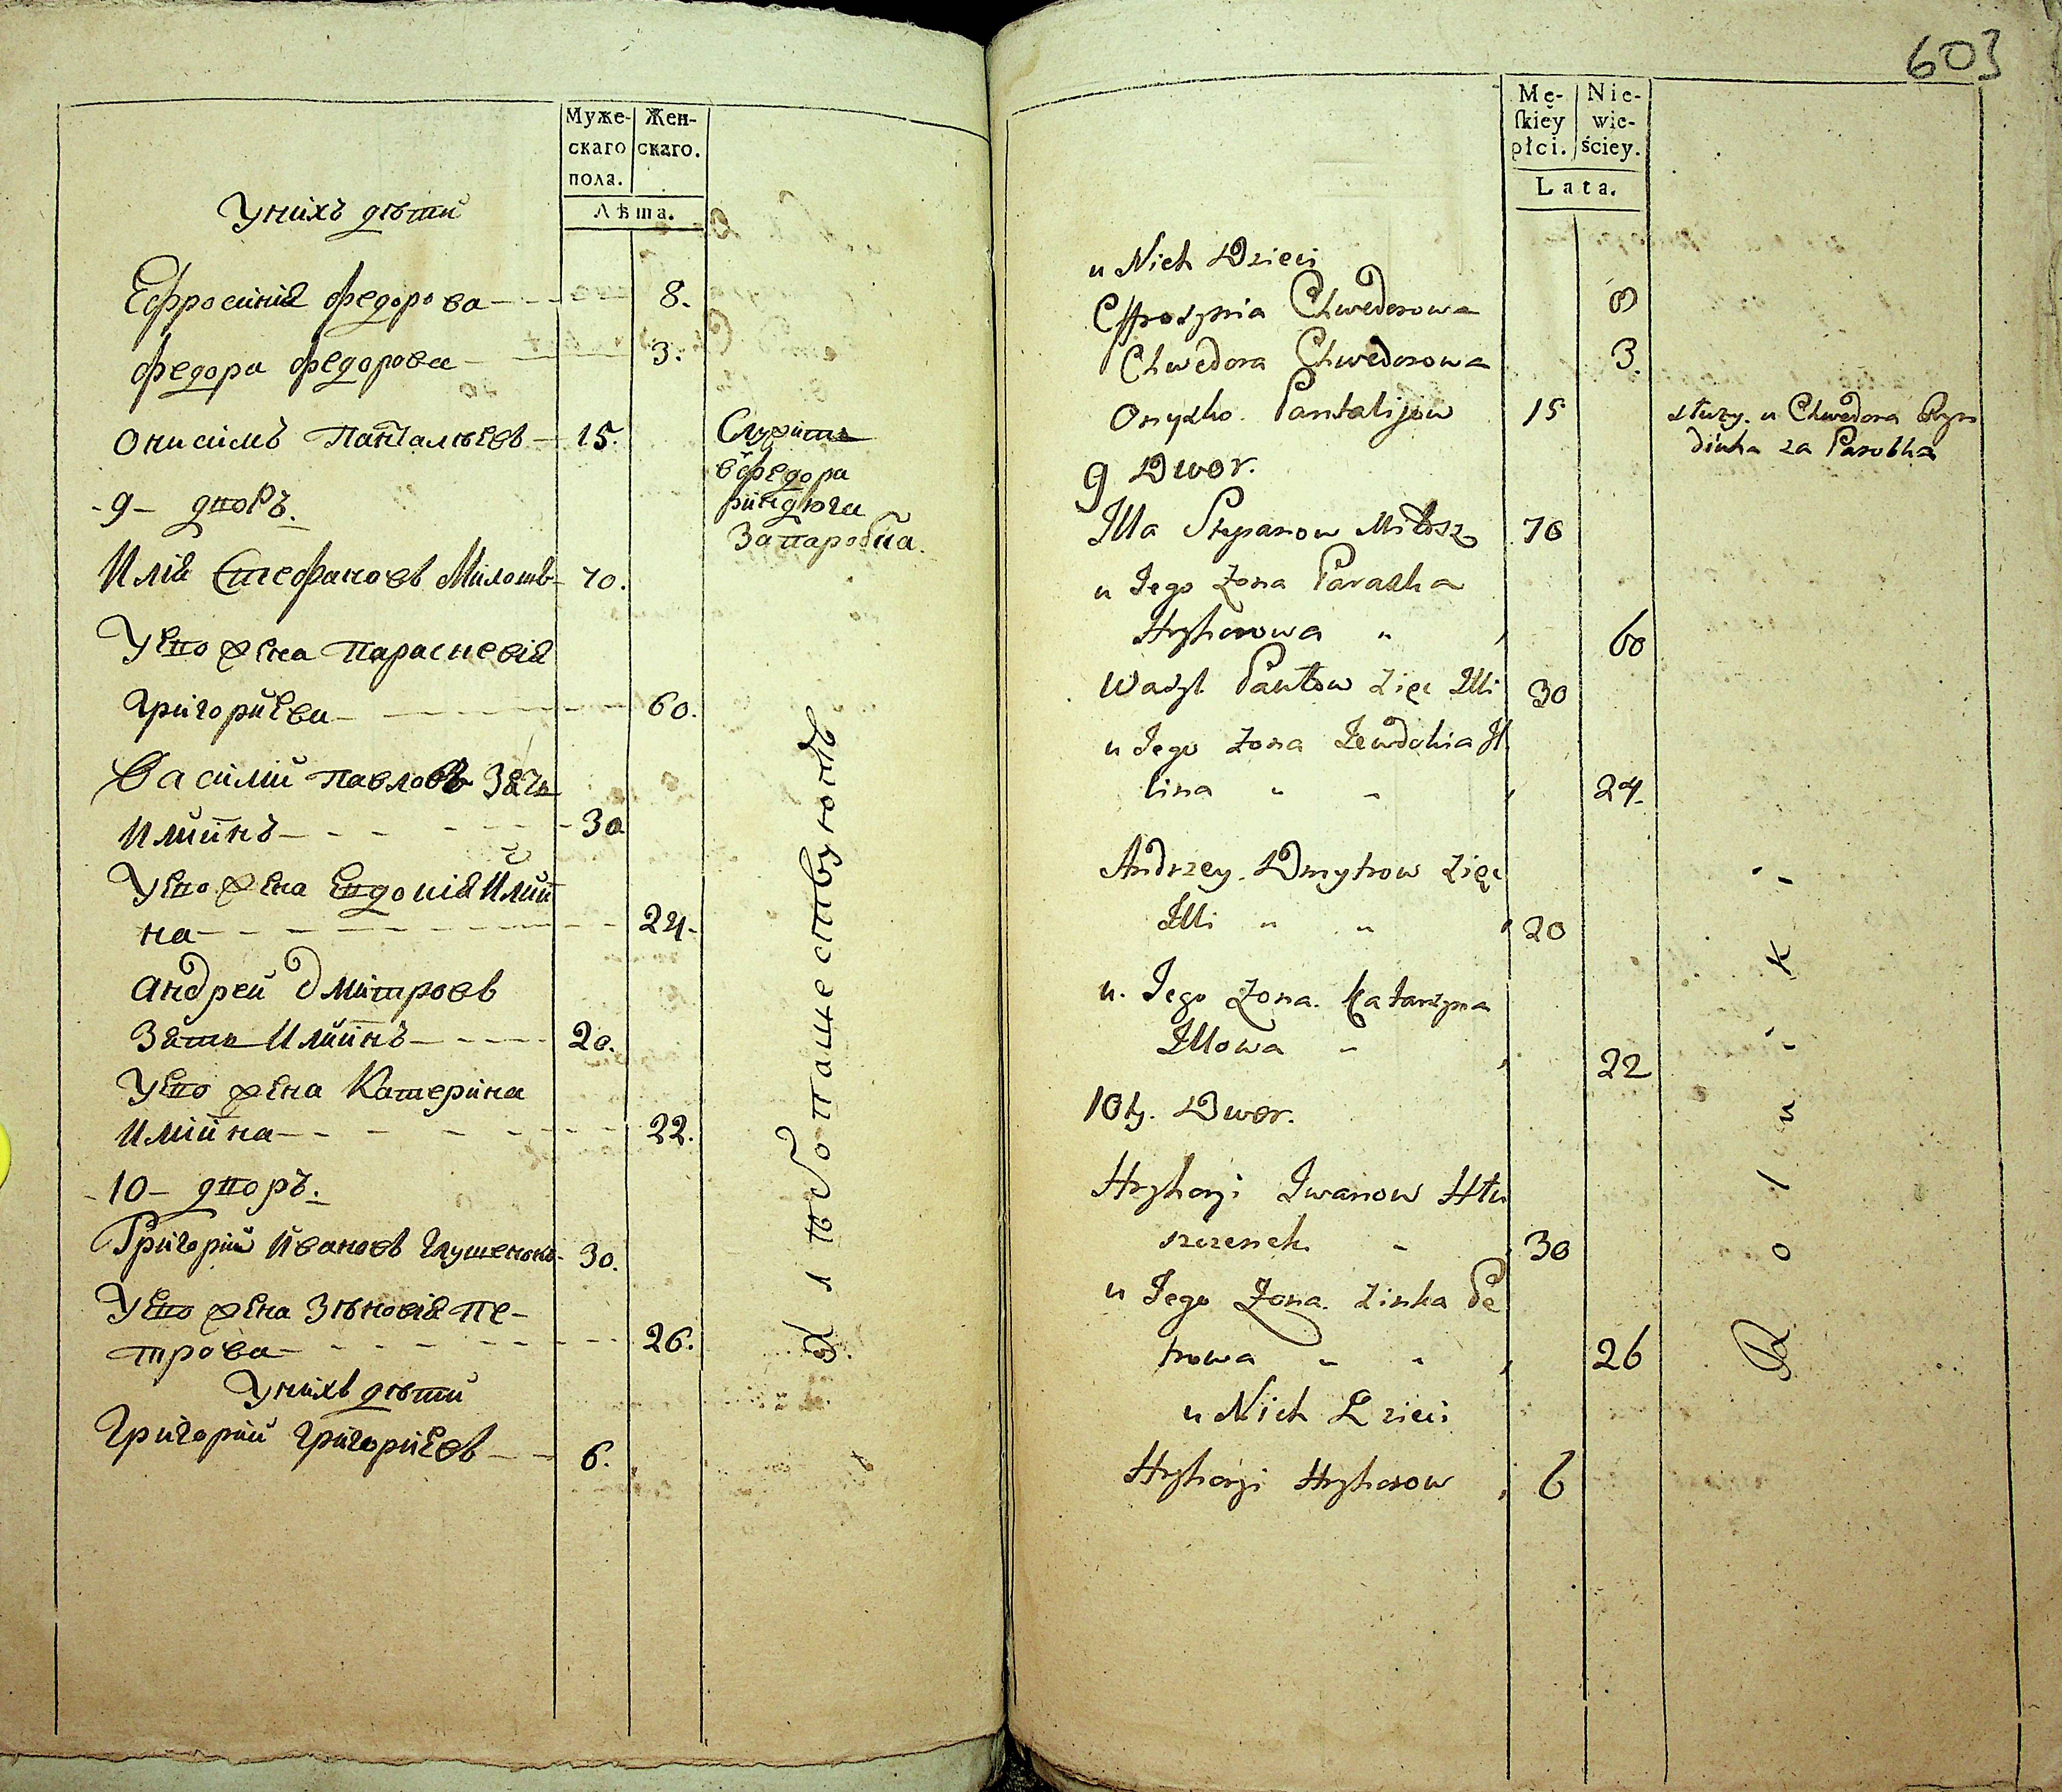 603
Муже-
скаго
пола.
Жен-
скаго.
Лѣта.
Унихъ дѣти
Ефросинія Федорова 8.
Федора Федорова 3.
Онисимъ Панталѣевъ 15.
Служитъ
вФедора
риндюга
Запаробка.
-9- дворъ.
Илія Стефановъ Милошъ 70.
Уево жена Параскевія
Григориева 60.
Василій Павловъ Зять
Илиинъ 30
Уево жена Евдокія Илии
на 24.
Андрей Дмитровъ
Зять Илиинъ 20.
Уево жена Катерина
Илиина 22.
-10- дворъ.
Григорий Ивановъ Глушенокъ 30.
Уево жена Зѣновія Пе-
трова 26.
Унихъ дѣти
Григорий Григориевъ 6.
Хлѣбопашествуютъ
Mę-
ſkiey
płci.
Nie-
wie-
ściey.
Lata.
u Nich Dzieci
Effrozynia Chwedorowa 8
Chwedora Chwedorowa 3.
Onyzko Pantalijow 15
służy u Chwedora Ryn
diuka za Parobka
9 Dwor.
Illa Stepanow Miłosz 70
u Jego Zona Paraska
Hryhorowa 60
Wasyl Pawłow Zięć Illi 30
u Jego Zona Jewdokia Jl
lina 24.
Andrzey Dmytrow Zięć
Illi 20
u Jego Zona Katarzyna
Illowa 22
10ty. Dwor.
Hryhoryi Iwanow Hłu
szczenok 30
u Jego Zona Zinka Pe
trowa 26
u Nich Dzieci
Hryhoryi Hryhorow 6
Rolniki